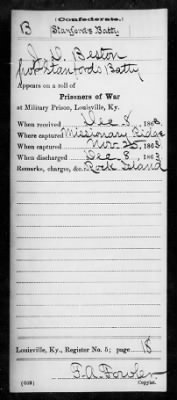 (Confederate.)
B Stanford's Batty.
J. D. Beston
Stanfords Batty
Appears on a roll of
Prisoners of War
at Military Prison, Louisville, Ky.
When received Dec 8, 1863
Where captured Missionary Ridge
When captured Nov. 25, 1863
When discharged Dec 8, 1863
Remarks, charges, &c. Rock Island
Louisville, Ky., Register No. 5; page 18
F. A. Fowler
Copyist.